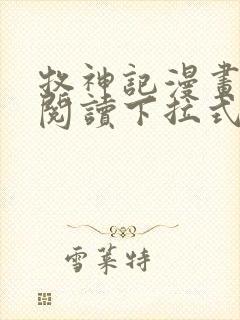 牧神記漫畫
閱讀下拉式
雪萊特